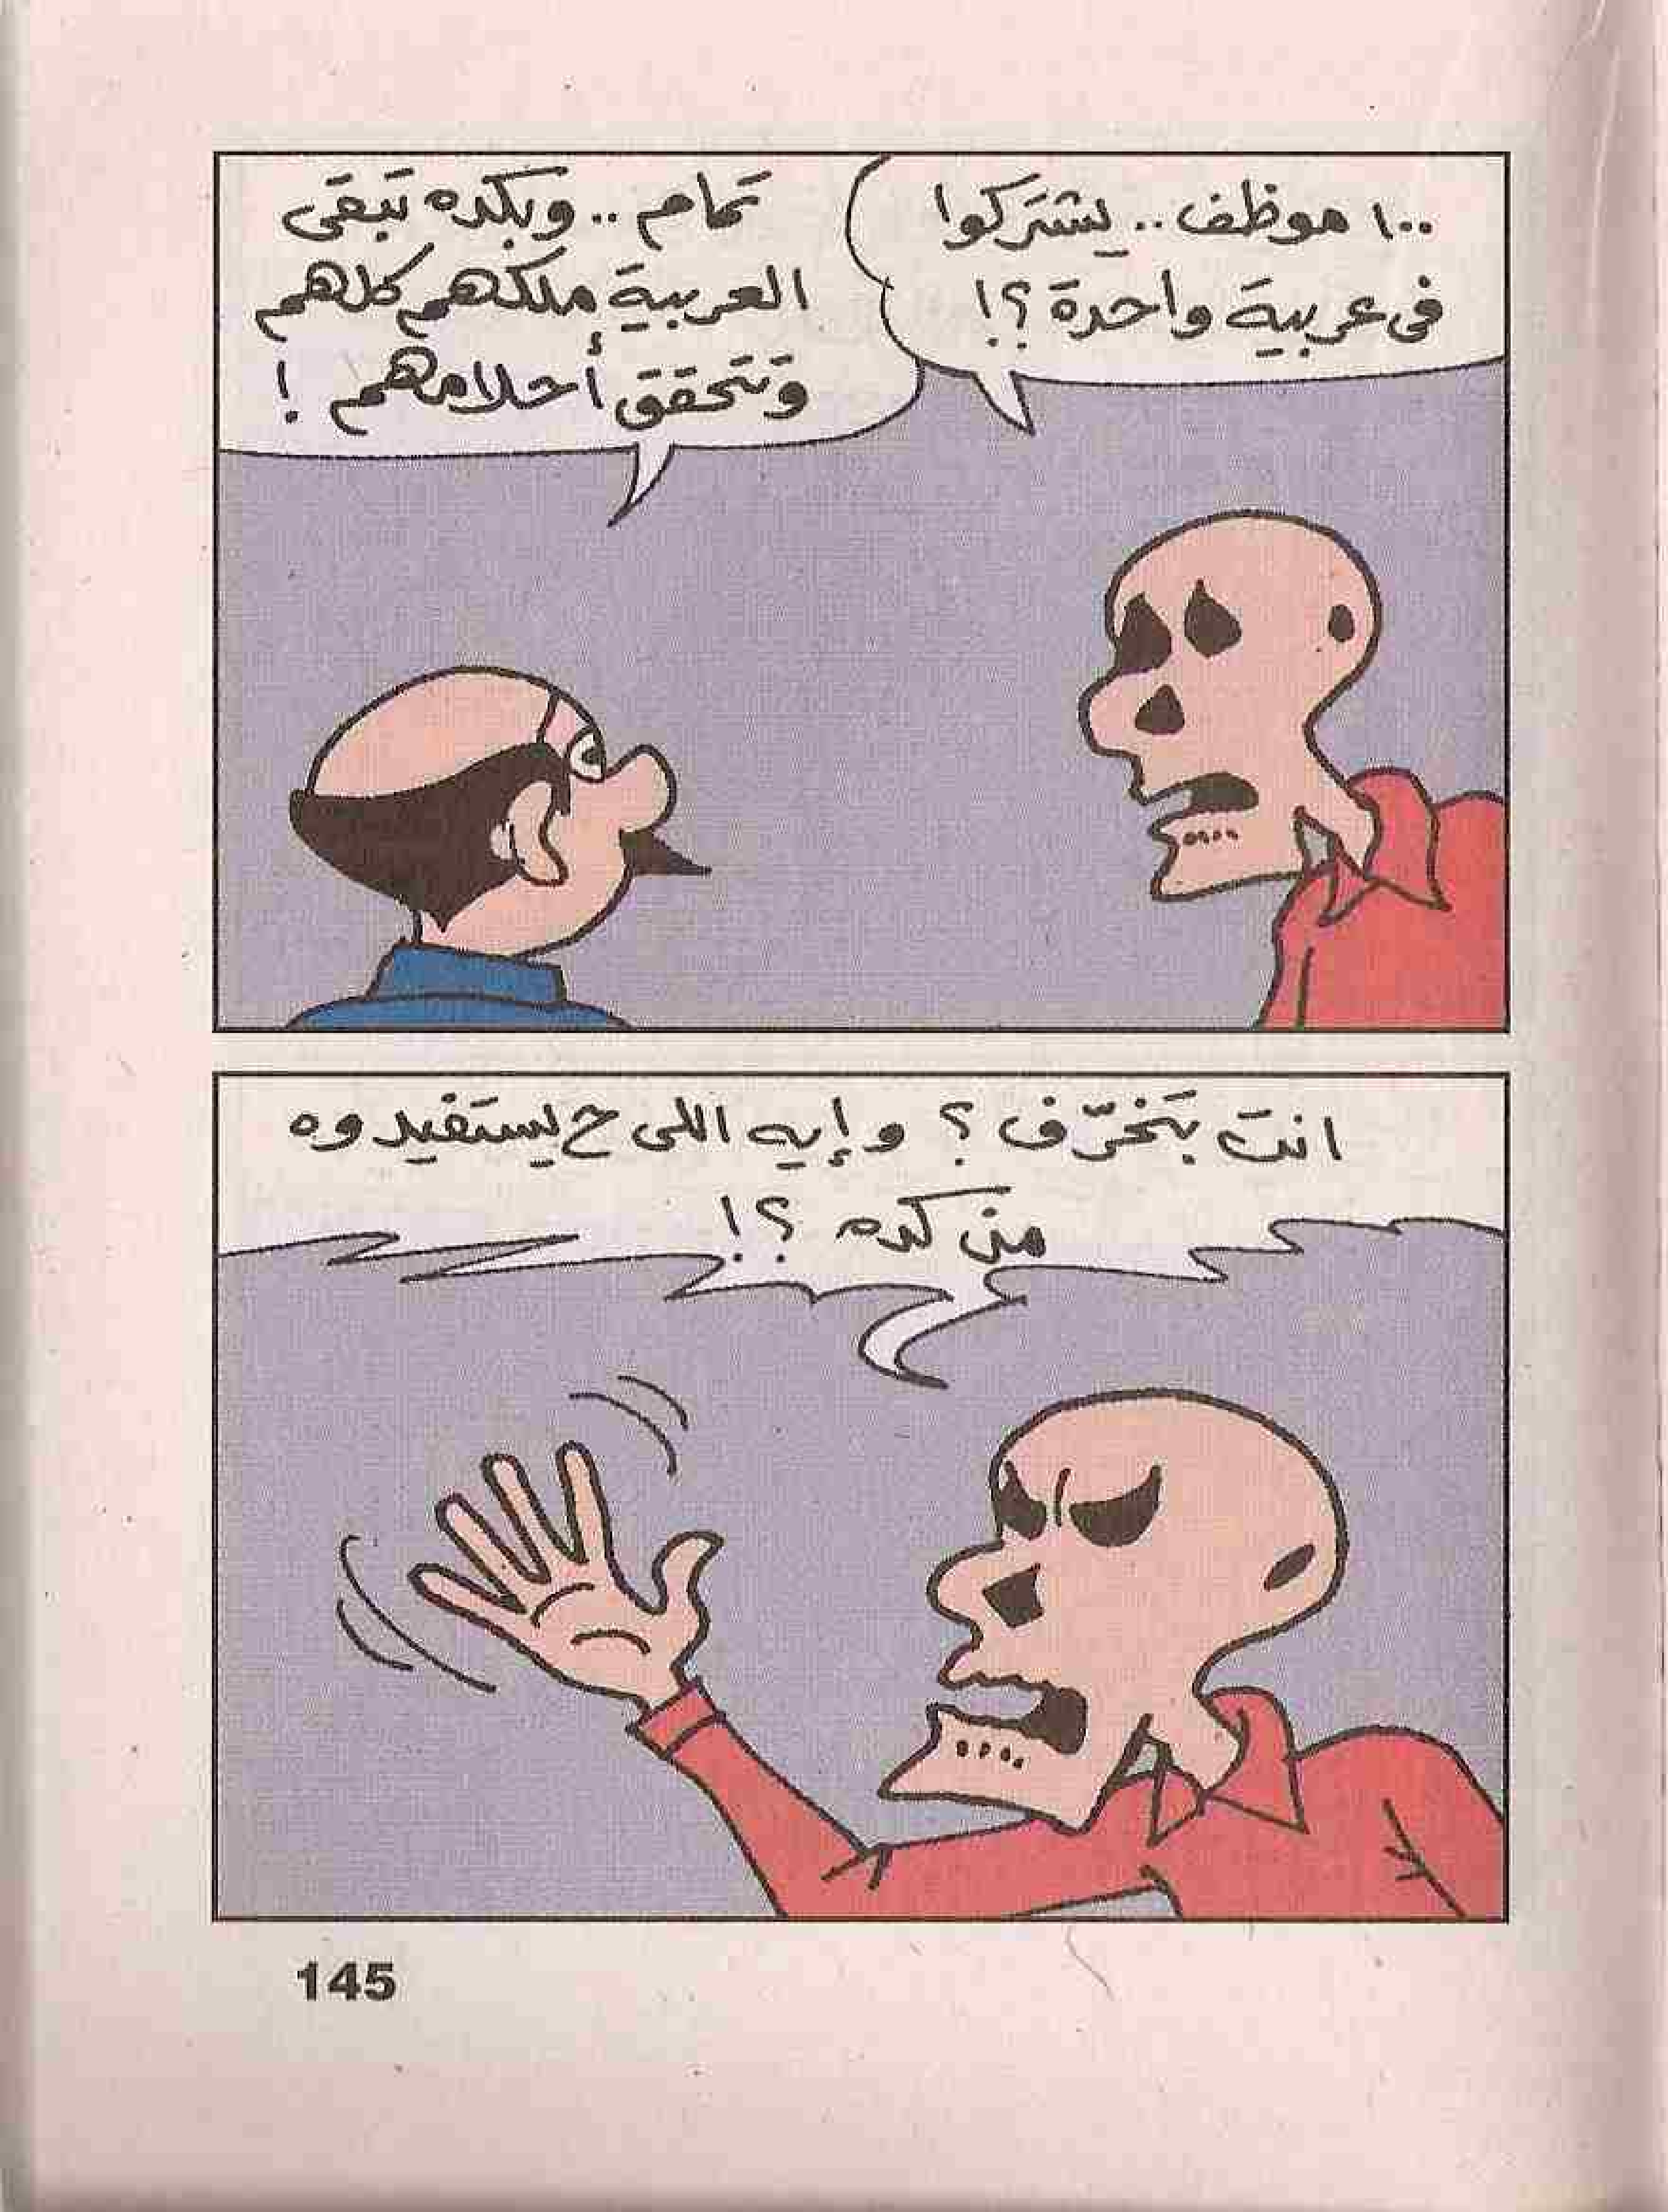 ١٠٠ موظف.. يشتركوا
فى عربية واحدة؟!
تمام.. وبكده تبقى
العربية ملكهم كلهم
وتتحقق أحلامهم!
انت بتخرّف؟ وإيه اللى ح يستفيدوه
من كده؟!
145